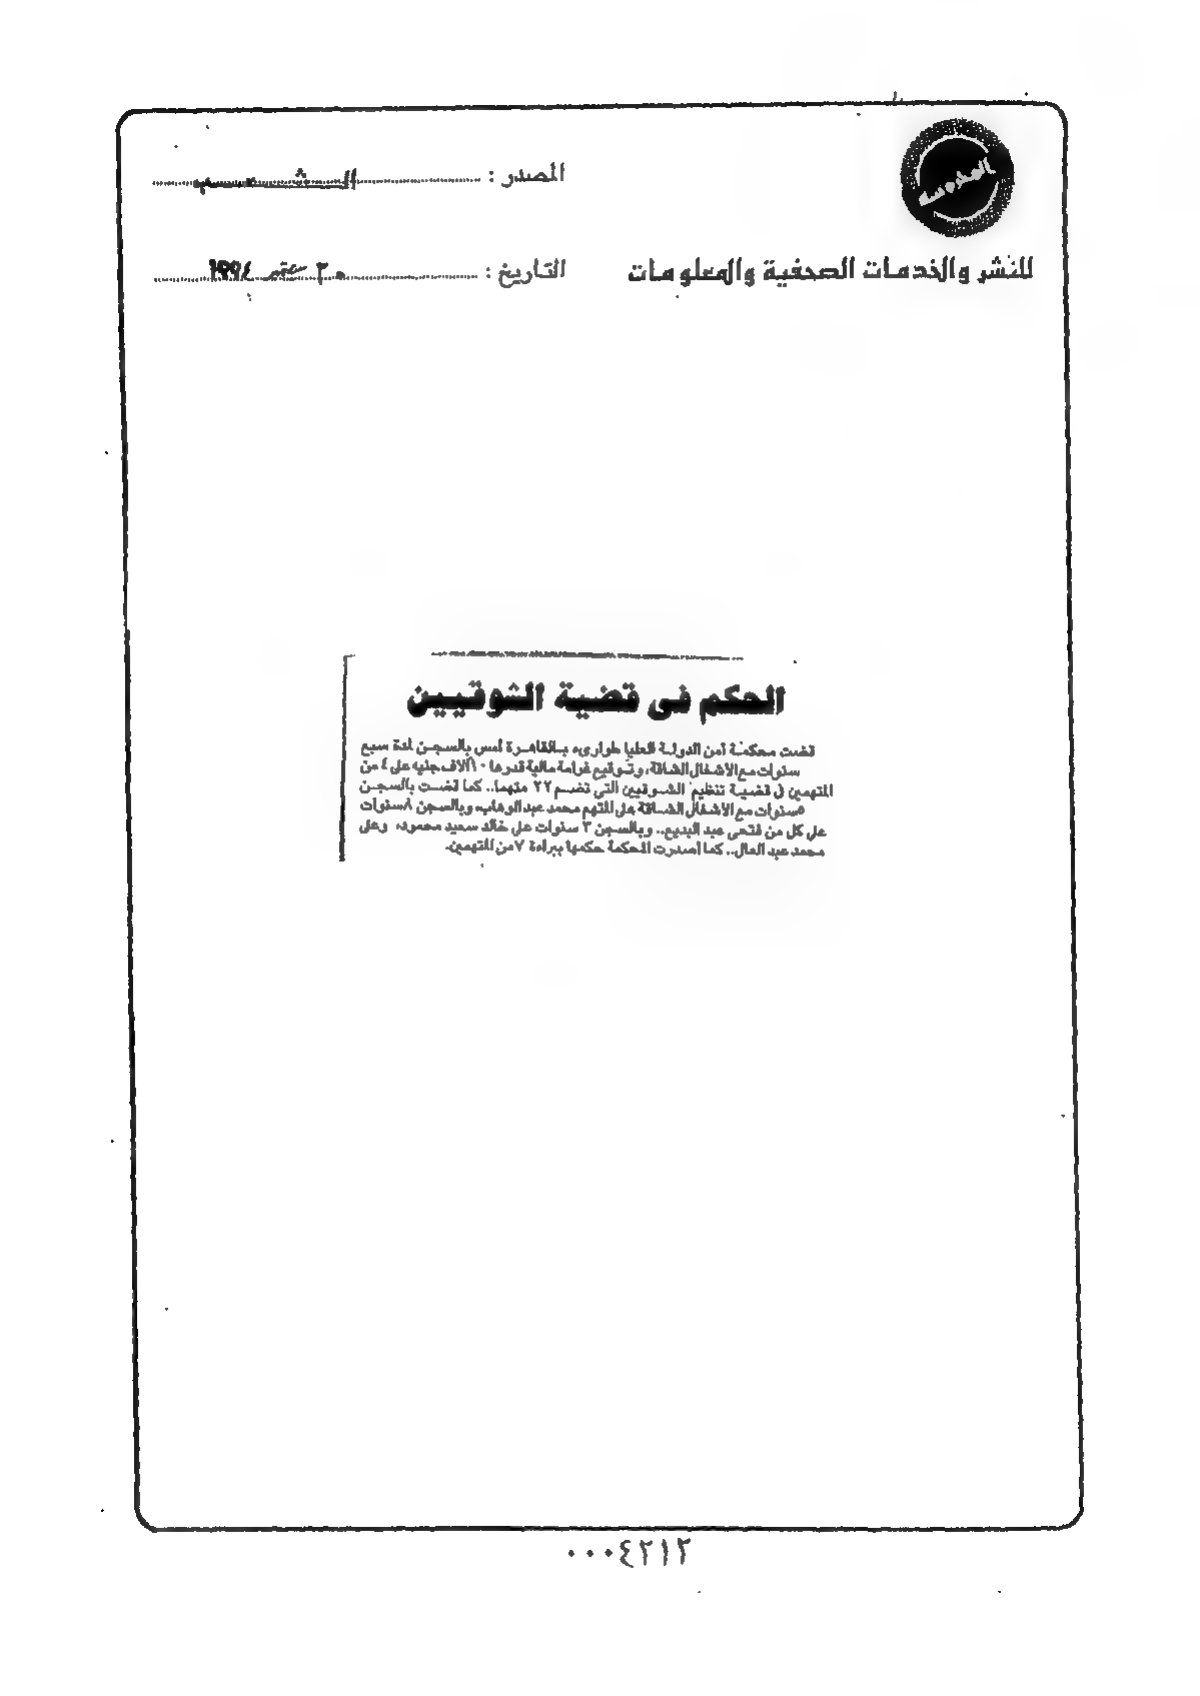 المدوسة
المصدر : الشعب
للنشر والخدمات الصحفية والمعلومات
التاريخ : ٣٠ سبتمبر ١٩٩٤
الحكم فى قضية الشوقيين
قضت محكمة أمن الدولة العليا طوارىء بالقاهرة أمس بالسجن لمدة سبع
سنوات مع الأشغال الشاقة، وتوقيع غرامة مالية قدرها ١٠ آلاف جنيه على ٤ من
المتهمين فى قضية تنظيم الشوقيين التى تضم ٢٢ متهما.. كما قضت بالسجن
٥ سنوات مع الأشغال الشاقة على المتهم محمد عبد الوهاب، وبالسجن ٨ سنوات
على كل من فتحى عبد البديع.. وبالسجن ٣ سنوات على خالد سعيد محمود، وعلى
محمد عبد العال.. كما أصدرت المحكمة حكمها ببراءة ٧ من المتهمين.
٠٠٠٤٢١٢